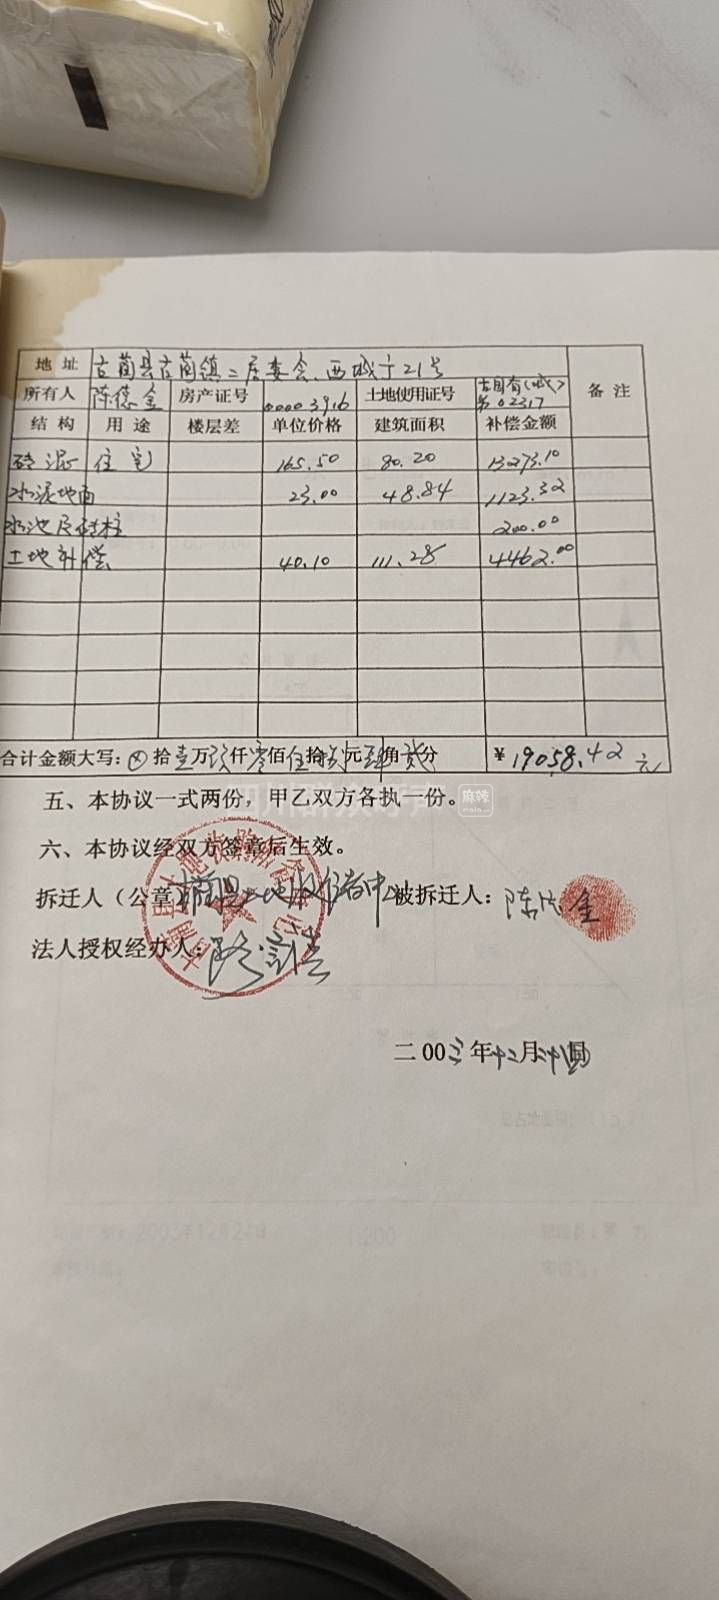 地址 古蔺县古蔺镇二居委会、西城宁21号 备注
所有人 陈德金 房产证号 00003916 土地使用证号 古国有(城)第02317
结构 用途 楼层差 单位价格 建筑面积 补偿金额
砖混 住宅 165.50 80.20 13273.10
水泥地面 23.00 48.84 1123.32
水池 200.00
土地补偿 40.10 111.28 4462.00
合计金额大写:⊗拾壹万玖仟零佰伍拾捌元肆角贰分 ¥19058.42元
五、本协议一式两份,甲乙双方各执一份。
麻辣
六、本协议经双方签章后生效。
拆迁人(公章) 古蔺县土地收储中心 被拆迁人:陈德金
法人授权经办人:
二00三年十二月二十八日
2003年12月24日